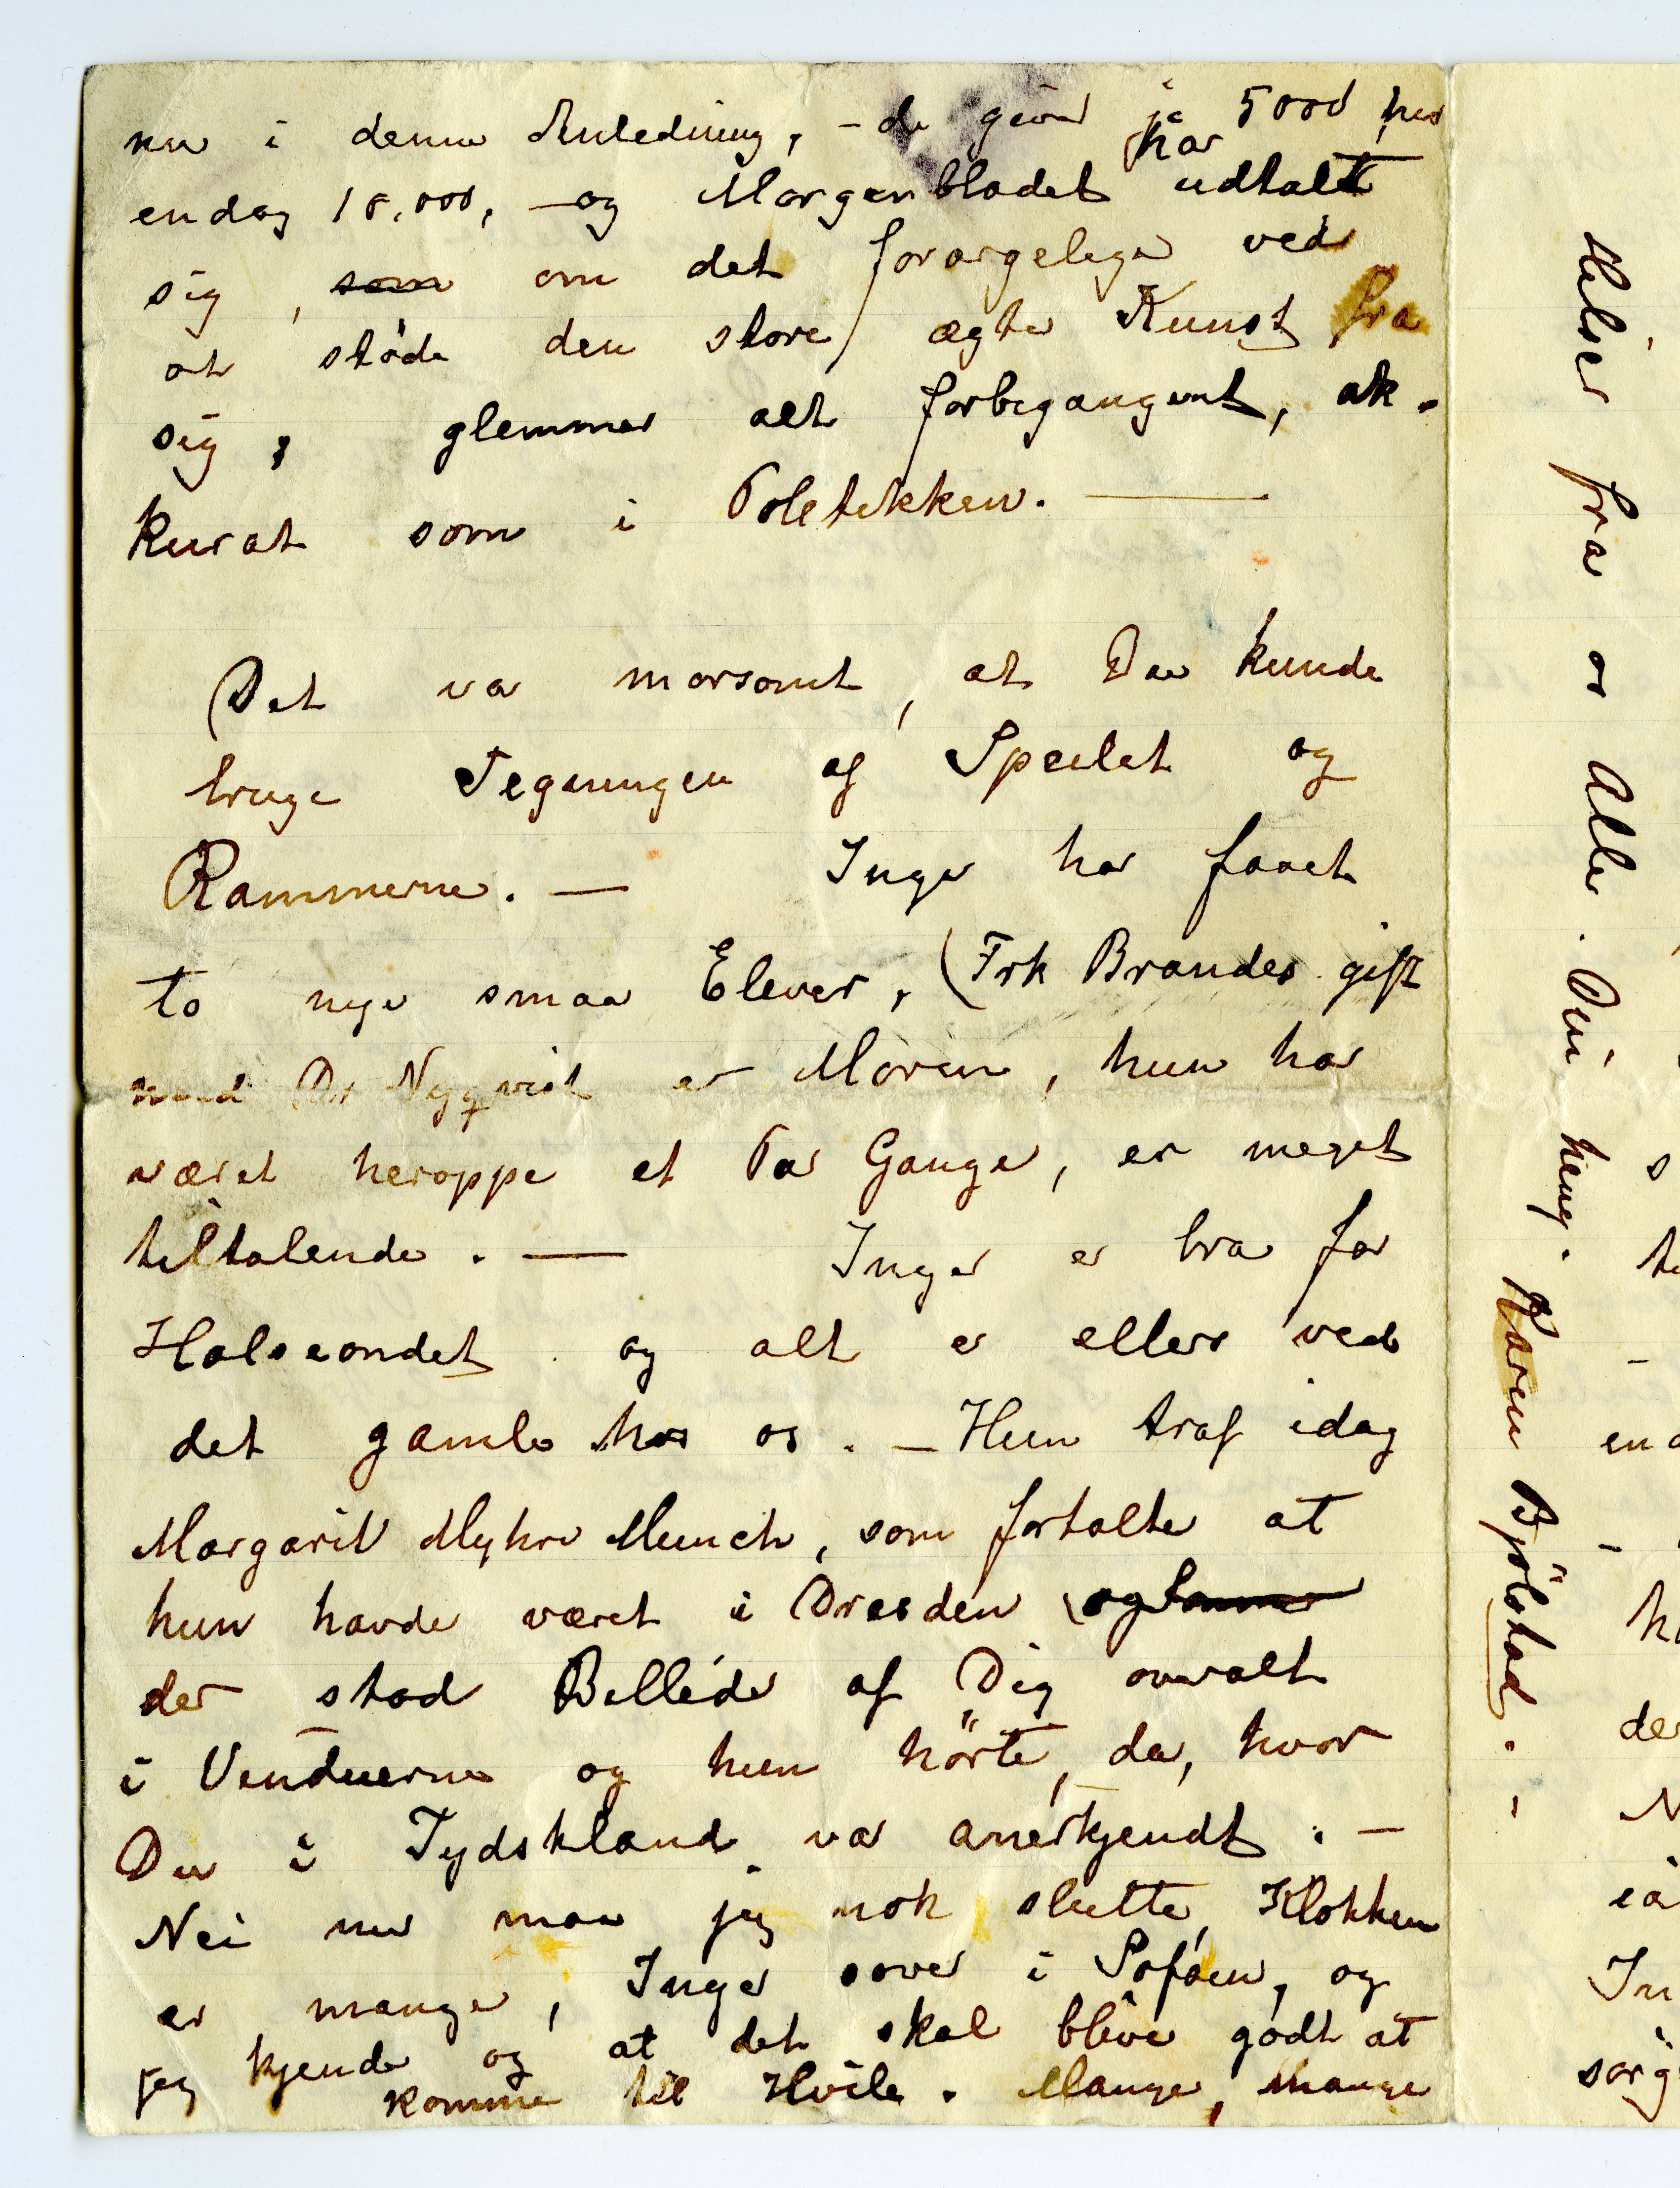 nu i denne Anledning, – de giver jo 5000 her
endog 10,000, – og Morgenbladet har udtalt
sig, som om det forargelige ved
at støde den store, ægte Kunst fra
sig, glemmer alt forbigangent, ak-
kurat som i Poletikken. —
Det var morsomt, at Du kunde
bruge Tegningen af Speilet og
Rammerne. — Inger har faaet
to nye smaa Elever, (Frk Brandes gift
med Dr Nyqvist er Moren, hun har
været heroppe et Par Gange, er meget
tiltalende. — Inger er bra for
Halseondet og alt er ellers ved
det gamle hos os. – Hun traf idag
Margarit Myhre Munch, som fortalte at
hun havde været i Dresden og Sommer
der stod Billeder af Dig overalt
i Vinduerne og hun hørte da, hvor
Du i Tydskland var anerkjendt. –
Nei nu maa jeg nok slutte, Klokken
er mange, Inger sover i Sofaen, og
jeg kjender og at det skal blive godt at
komme til Hvile. Mange, mange
Hilser fra os Alle. Din heng. Karen Bjølstad. –